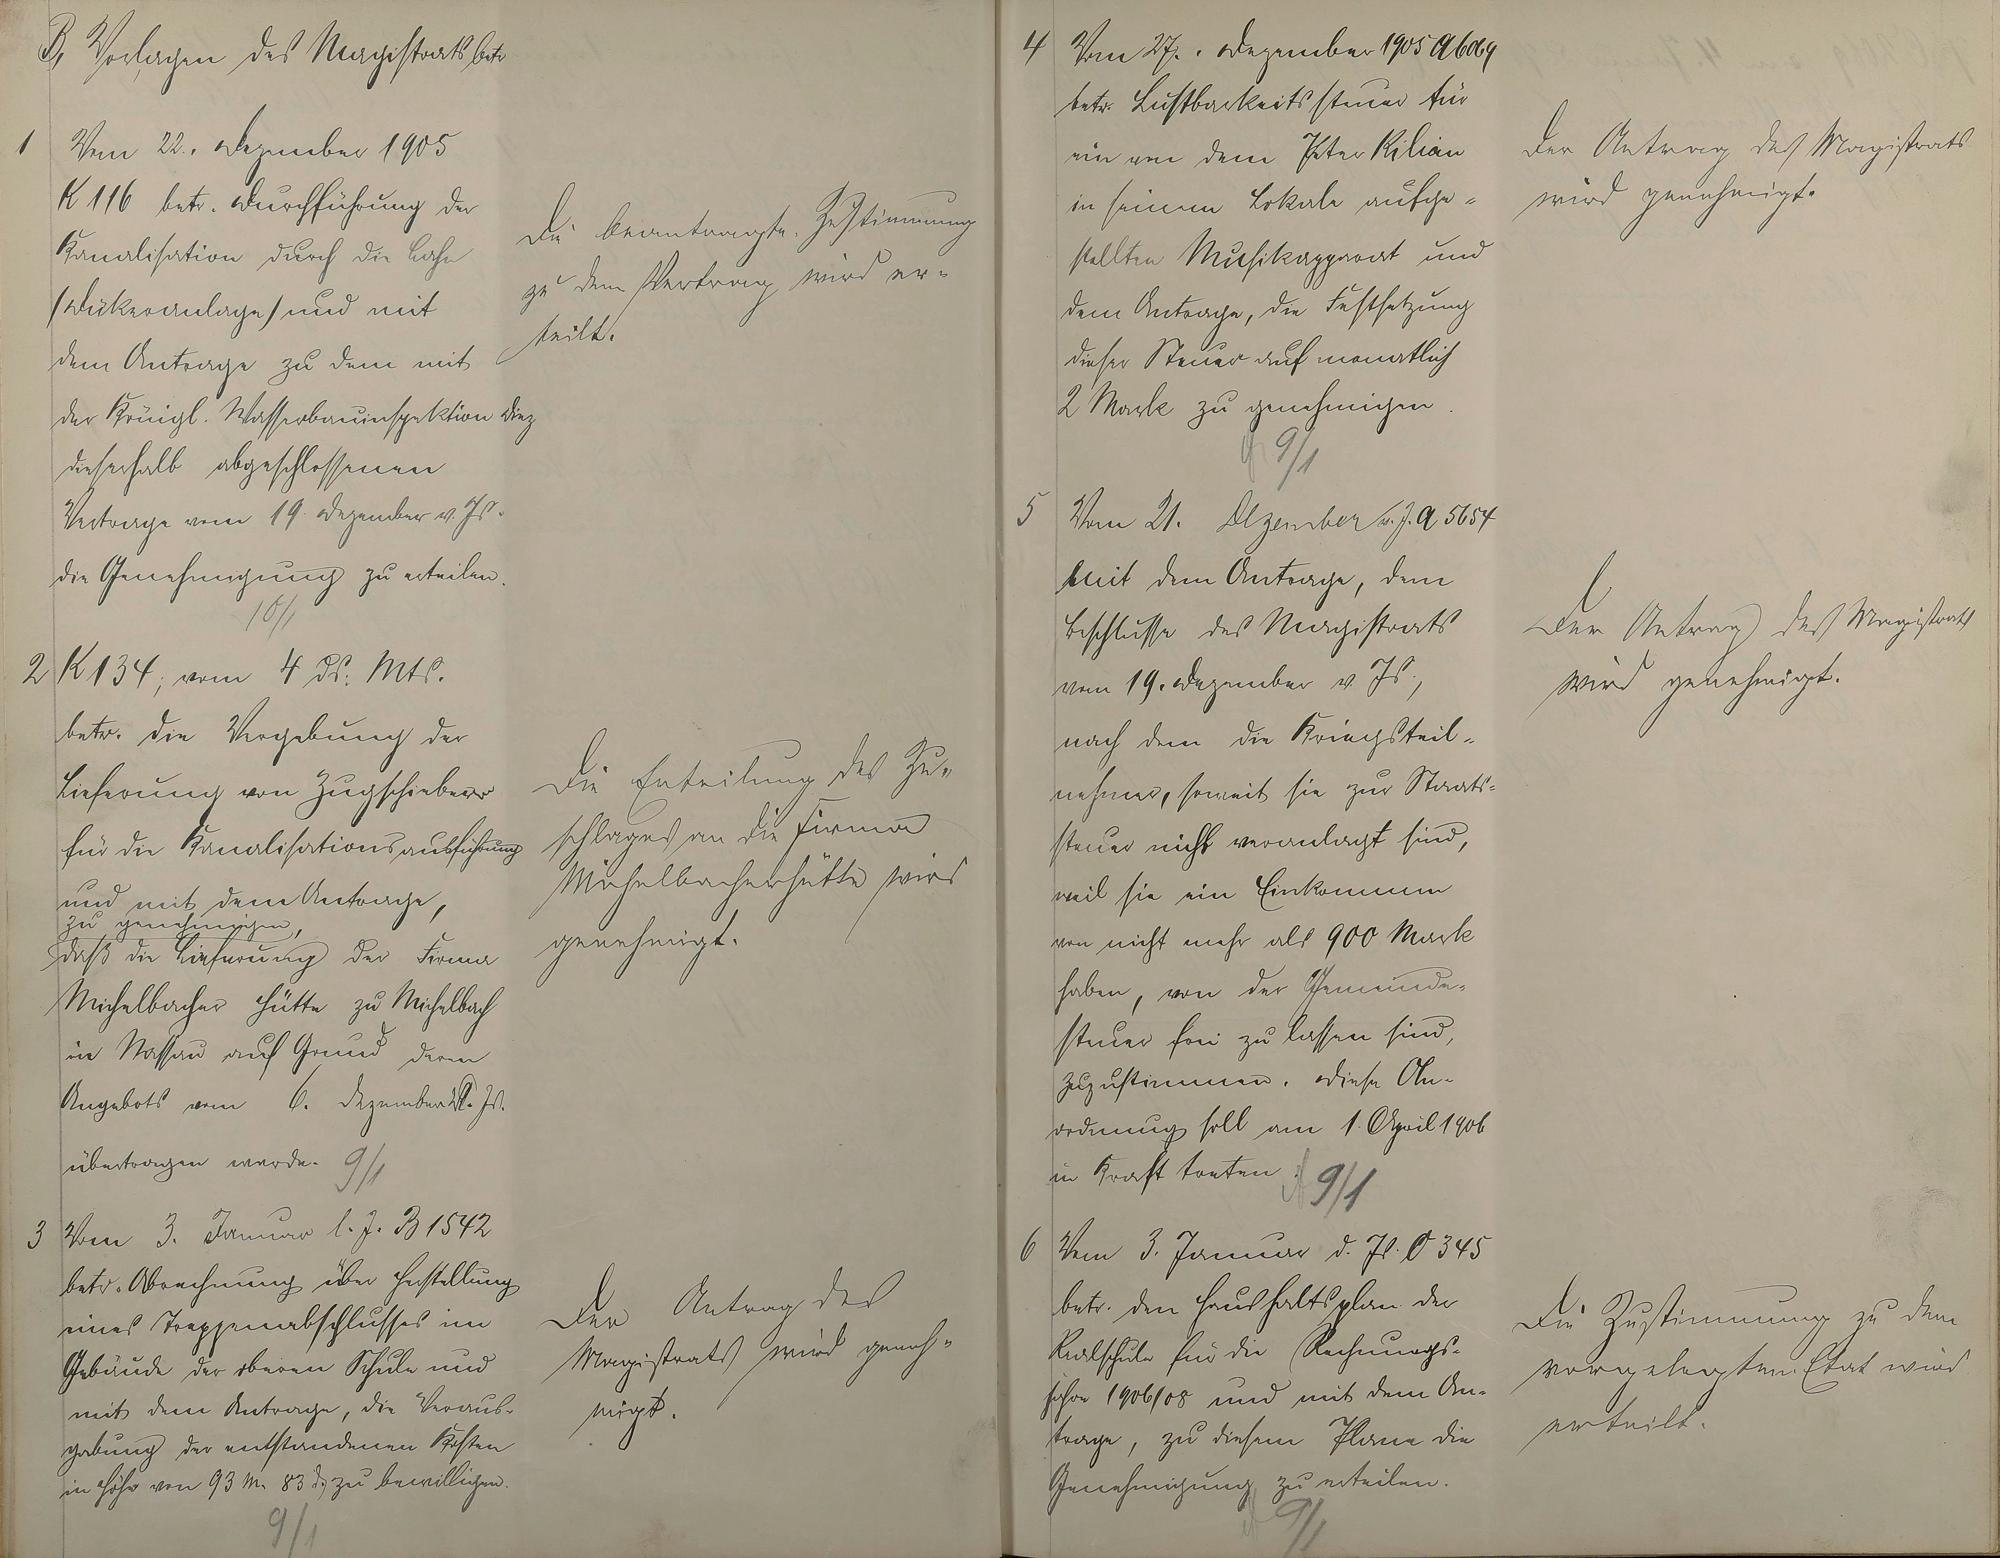 B, Vorlagen des Magistrats betr
1 Vom 22. Dezember 1905
K 116 betr. Durchführung der
Kanalisation durch die Lahn
(Dükeranlage) und mit
dem Antrage zu dem mit
der Königl. Wasserbauinspektion Diez
dieserhalb abgeschlossenen
Vertrage vom 19. Dezember v. Js.
die Genehmigung zu erteilen.
10/1
Die beantragte Zustimmung
zu dem Vertrag wird er-
teilt.
2 K 134, vom 4 ds. Mts.
betr. die Vergebung der
Lieferung von Zugschieber
für die Kanalisationsausführung
und mit dem Antrage,
zu genehmigen,
daß die Lieferung der Firma
Michelbacher Hütte zu Michelbach
in Nassau auf Grund deren
Angebots vom 6. Dezember v. Js.
übertragen werde. 9/1
Die Erteilung des Zu-
schlages an die Firma
Michelbacherhütte wird
genehmigt.
3 Vom 3. Januar l. J. B 1542
betr. Abrechnung über Herstellung
eines Treppenabschlusses im
Gebäude der oberen Schule und
mit dem Antrage, die Veraus-
gabung der entstandenen Kosten
in Höhe von 93 M. 83 d. zu bewilligen.
9/1
Der Antrag des
Magistrats wird geneh-
migt.
4 Vom 27. Dezember 1905 A
betr. Lustbarkeitssteuer für
ein von dem Peter Kilian
in seinem Lokale aufge-
stellten Musikapparat und
dem Antrage, die Festsetzung
dieser Steuer auf monatlich
2 Mark zu genehmigen.
9/1
Der Antrag des Magistrats
wird genehmigt.
5 Vom 21. Dezember v. J. A 5654
mit dem Antrage, dem
Beschlusse des Magistrats
vom 19. Dezember v. Js.,
nach dem die Kriegsteil-
nehmer, soweit sie zur Staats-
steuer nicht veranlagt sind,
weil sie ein Einkommen
von nicht mehr als 900 Mark
haben, von der Gemeinde-
steuer frei zu lassen sind,
zuzustimmen. Diese An-
ordnung soll am 1. April 1906
in Kraft treten. 9/1
Der Antrag des Magistrats
wird genehmigt.
6 Vom 3. Januar d. Js. O 345
betr. den Haushaltsplan der
Realschule für die Rechnungs-
jahre 1906/08 und mit dem An-
trage, zu diesem Plane die
Genehmigung zu erteilen.
9/1
Die Zustimmung zu dem
vorgelegten Etat wird
erteilt.